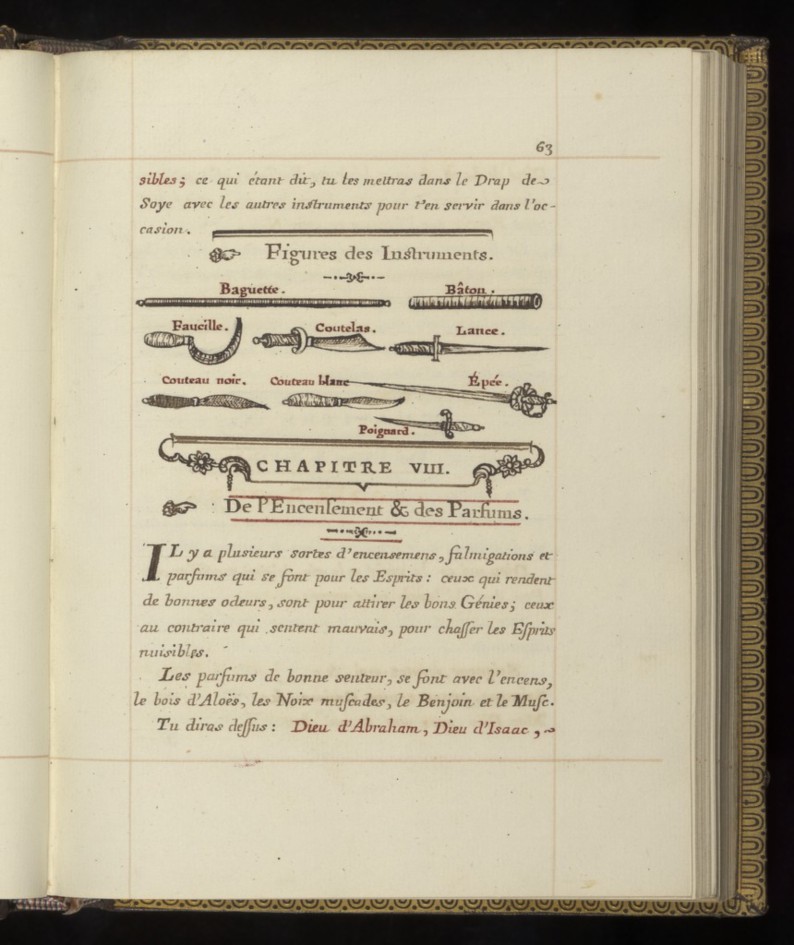 63
sibles; ce qui étant dit, tu les mettras dans le Drap de
Soye avec les autres instruments pour t'en servir dans l'oc-
casion.
Figures des Instruments.
Baguette. Bâton.
Faucille. Coutelas. Lance.
Couteau noir. Couteau blanc Épée.
Poignard.
CHAPITRE VIII.
De l'Encensement & des Parfums.
IL y a plusieurs sortes d'encensemens, fulmigations et
parfums qui se font pour les Esprits: ceux qui rendent
de bonnes odeurs, sont pour attirer les bons Génies; ceux
au contraire qui sentent mauvais, pour chasser les Esprits
nuisibles.
Les parfums de bonne senteur, se font avec l'encens,
le bois d'Aloës, les Noix muscades, le Benjoin et le Musc.
Tu diras dessus: Dieu d'Abraham, Dieu d'Isaac,